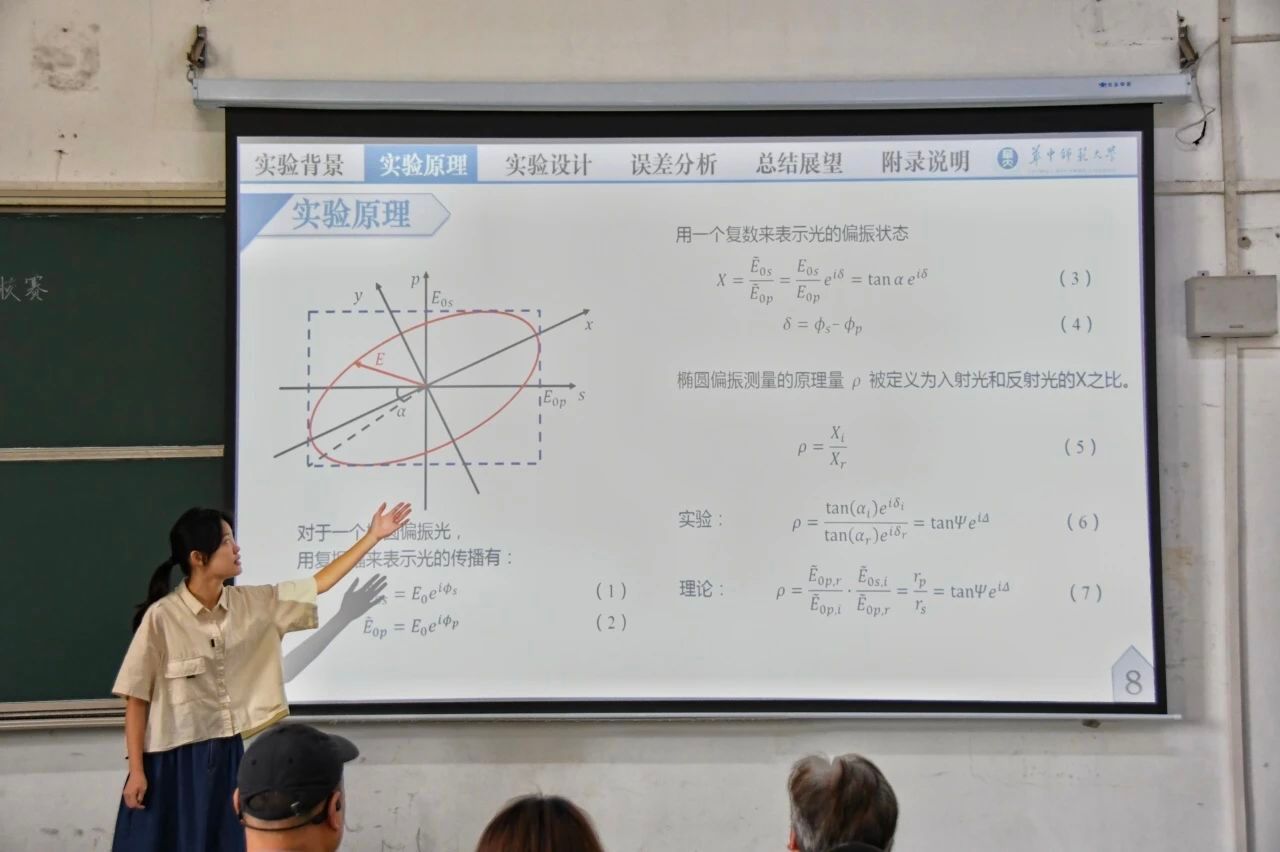 校赛
实验背景 实验原理 实验设计 误差分析 总结展望 附录说明 华中师范大学
实验原理
y p E₀ₛ x
E
α E₀ₚ s
对于一个 圆偏振光，
用复振幅来表示光的传播有：
ₛ = E₀e^{iϕₛ} （1）
Ẽ₀ₚ = E₀e^{iϕₚ} （2）
用一个复数来表示光的偏振状态
X = Ẽ₀ₛ/Ẽ₀ₚ = E₀ₛ/E₀ₚ e^{iδ} = tan α e^{iδ} （3）
δ = ϕₛ- ϕₚ （4）
椭圆偏振测量的原理量 ρ 被定义为入射光和反射光的X之比。
ρ = Xᵢ/Xᵣ （5）
实验： ρ = tan(αᵢ)e^{iδᵢ}/tan(αᵣ)e^{iδᵣ} = tanΨe^{iΔ} （6）
理论： ρ = Ẽ₀ₚ,ᵣ/Ẽ₀ₚ,ᵢ · Ẽ₀ₛ,ᵢ/Ẽ₀ₚ,ᵣ = rₚ/rₛ = tanΨe^{iΔ} （7）
8